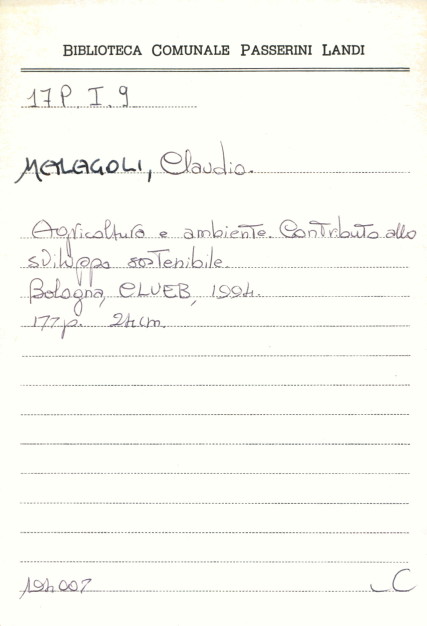 BIBLIOTECA COMUNALE PASSERINI LANDI
17 P. I. 9
MALAGOLI, Claudio.
Agricoltura e ambiente. Contributo allo
sviluppo sostenibile.
Bologna, CLUEB, 1994.
177 p. 24 cm.
194007
C